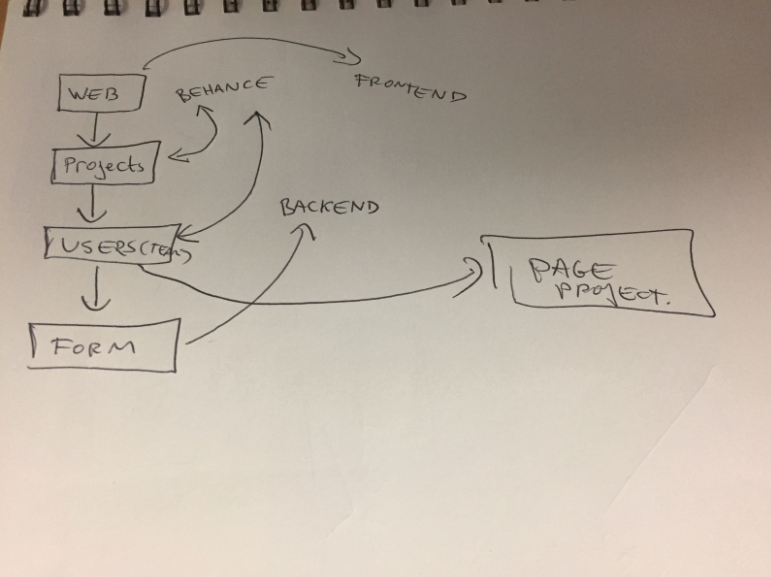 WEB
BEHANCE
FRONTEND
Projects
BACKEND
USERS(TEAM)
PAGE
PROJECT.
FORM